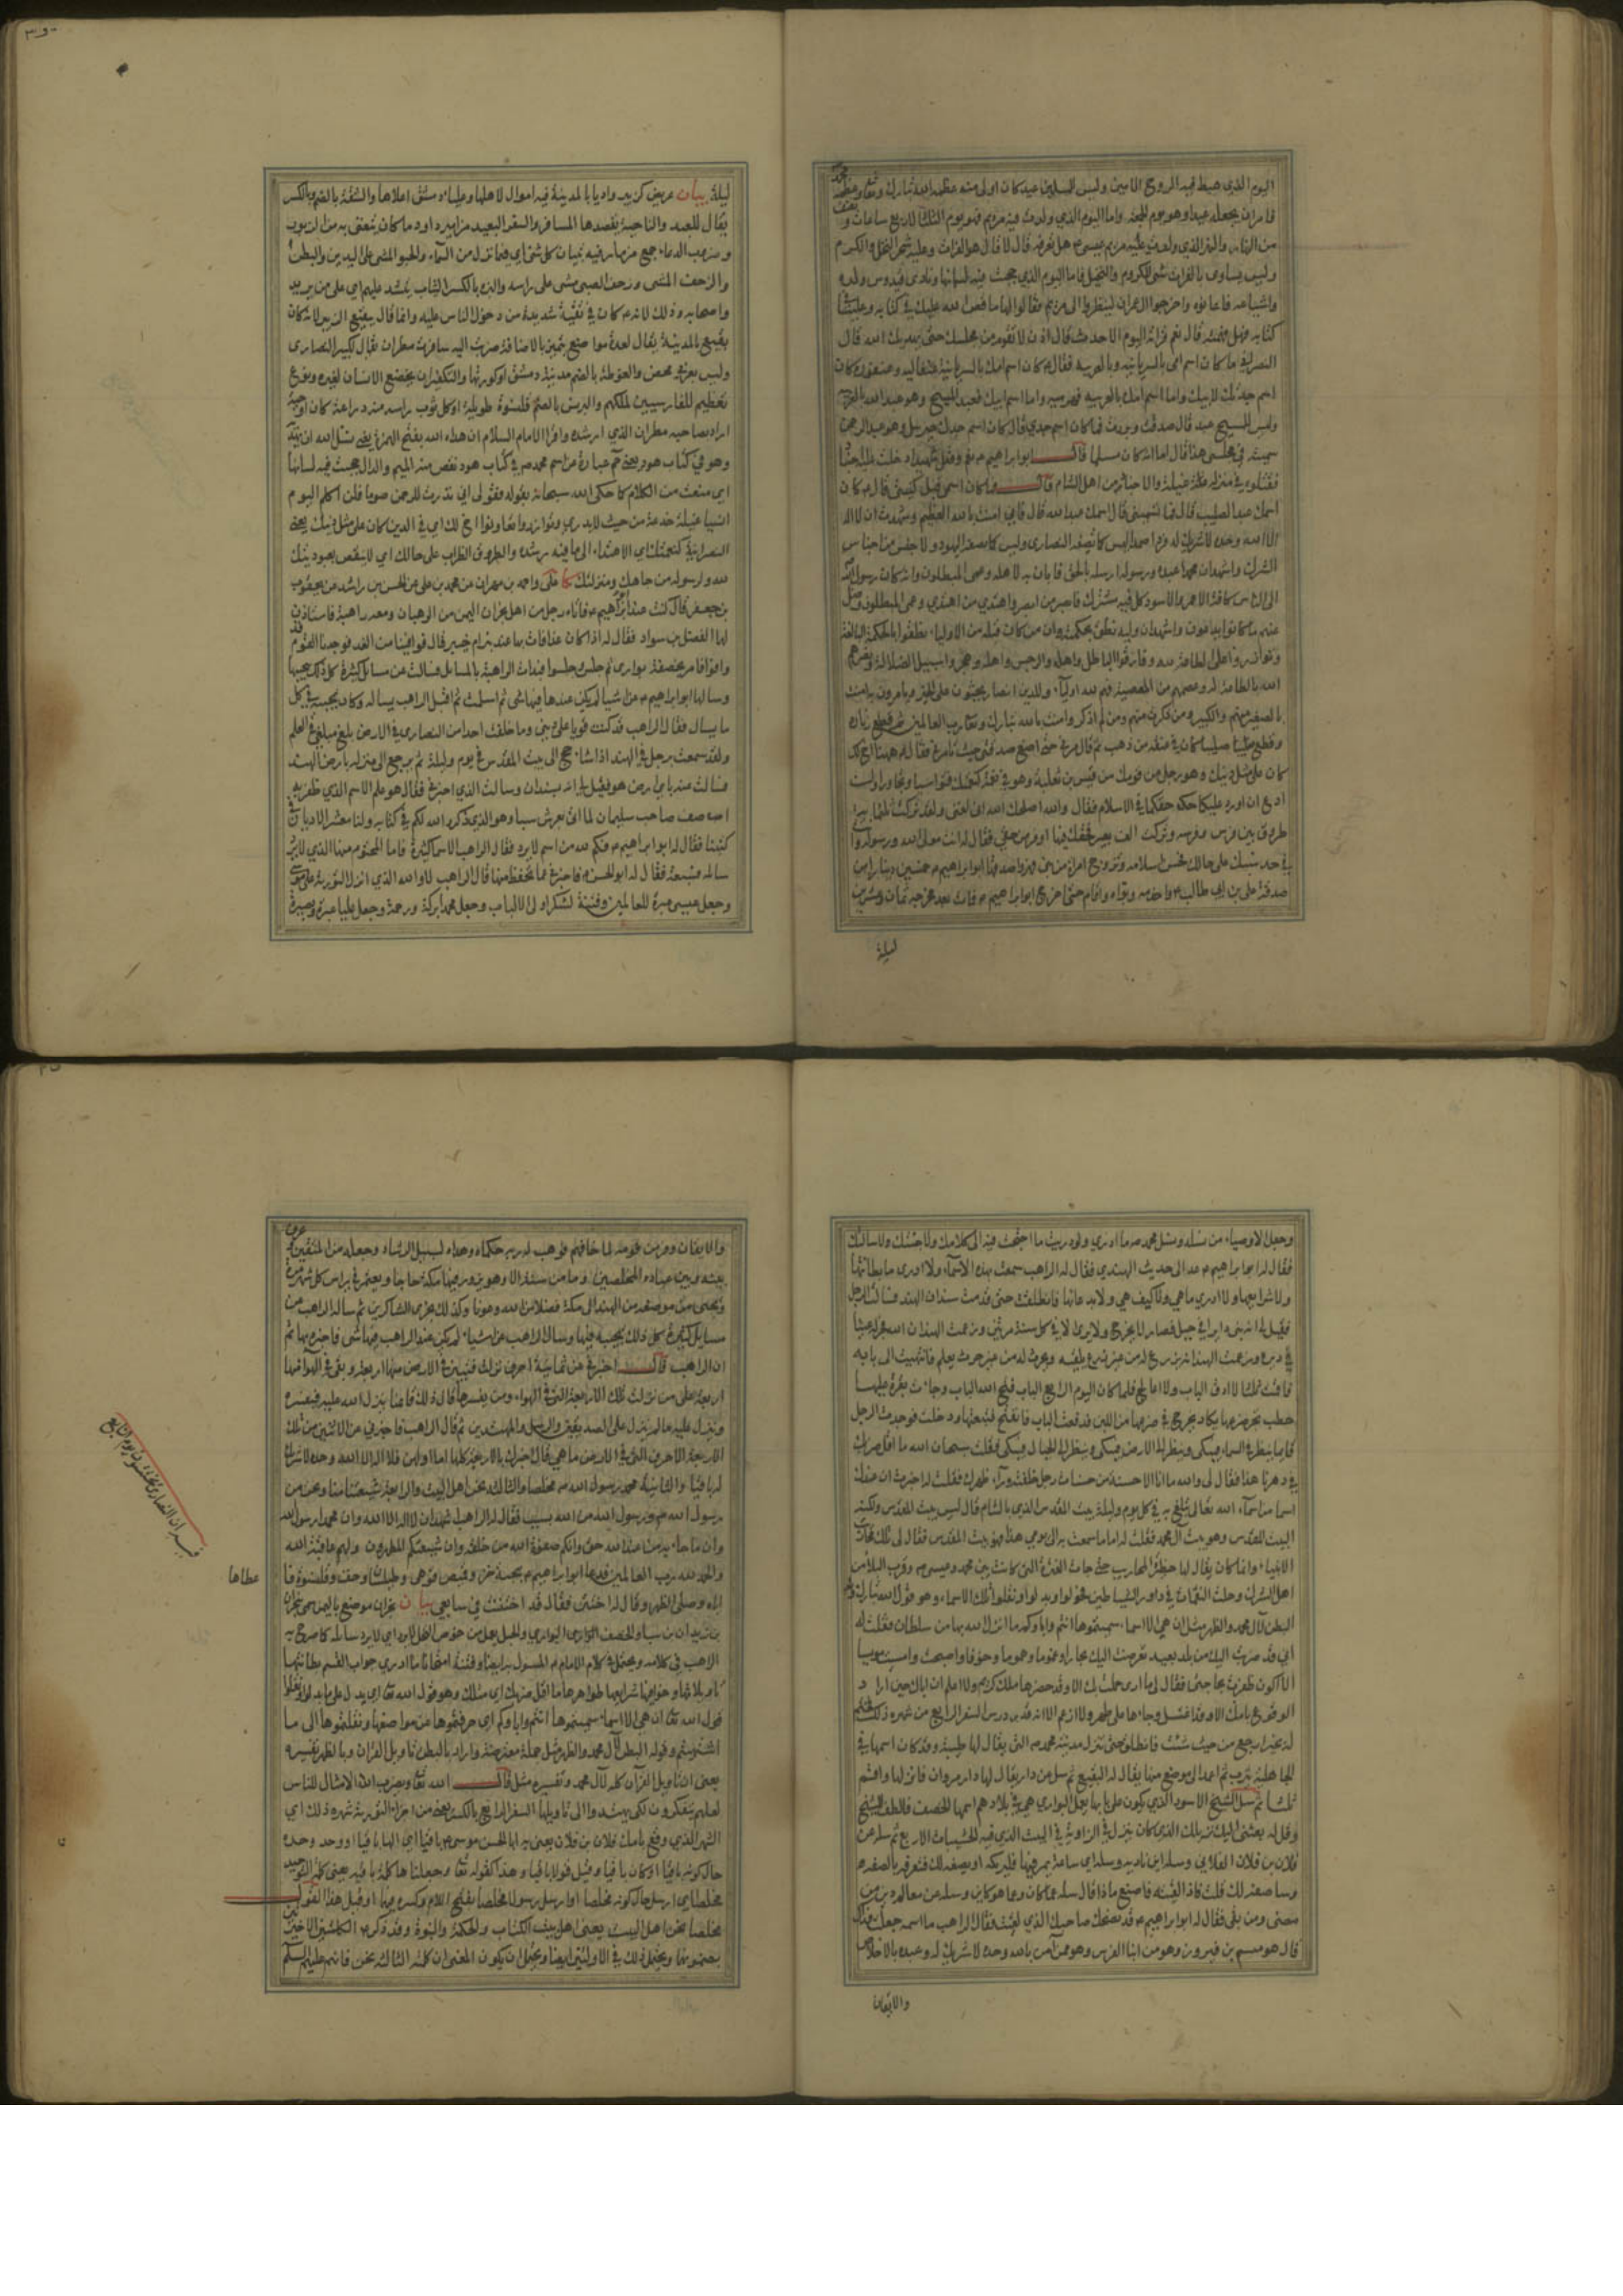 اليوم الذي هبط فيه الروح الامين وليس للمسلمين عيد كان اولى منه عظمه الله تبارك وتعا وعظمه محمد
فامر ان يجعله عيدا وهو يوم الجمعة واما اليوم الذي ولدت فيه مريم فهو يوم الثلثا لاربع ساعات ونصف
من النهار والنهر الذي ولدت عليه مريم عيسى ع هل تعرفه قال لا قال هو الفرات وعليه شجر النخل والكرم
وليس يساوى بالفرات شئ للكروم والنخيل فاما اليوم الذي حجبت فيه لسانها ونادى قيدوس ولده
واشياعه فاعانوه واخرجوا ال عمران لينظروا الى مريم فقالوا لها ما قص الله عليك في كتابه وعلينا في
كتابه فهل فهمته قال نعم قراته اليوم الاحدث قال اذن لا تقوم من مجلسك حتى يهديك الله قال
النصراني ما كان اسم امى بالسريانية وبالعربية فقال كان اسم امك بالسريانية عنقاليه وعنقورة كان
اسم جدتك لابيك واما اسم امك بالعربيه فهو ميه واما اسم ابيك فعبد المسيح وهو عبد الله بالعربيه
وليس للمسيح عبد قال صدقت وبررت فما كان اسم جدي قال كان اسم جدك جبرئيل وهو عبد الرحمن
سميته في مجلسى هذا قال اما انه كان مسلما قال ابو ابراهيم ع نعم وقتل شهيدا دخلت عليه اجناد
فقتلوه في منزله غيلة والاجناد من اهل الشام قال فما كان اسمى قبل كنيتى قال ع كان
اسمك عبد الصليب قال فما تسمينى قال اسمك عبد الله قال فاني امنت بالله العظيم وشهدت ان لا اله
الا الله وحده لا شريك له فردا صمدا ليس كما تصفه النصارى وليس كما تصفه اليهود ولا جنس من اجناس
الشرك واشهد ان محمدا عبده ورسوله ارسله بالحق فابان به لاهله وعمى المبطلون وانه كان رسول الله
الى الناس كافة الاحمر والاسود كل فيه مشترك فابصر من ابصر واهتدي من اهتدي وعمى المبطلون وضل
عنهم ما كانوا يدعون واشهد ان وليه نطق بحكمته وان من كان قبله من الاوليا نطقوا بالحكمة البالغة
وتوازروا على الطاعة لله وفارقوا الباطل واهله والرجس واهله وهجروا سبيل الضلالة ونصرهم
الله بالطاعة له وعصمهم من المعصية فهم لله اولياء وللدين انصار يحثون على الخير ويامرون به امنت
بالصغير منهم والكبير ومن ذكرت منهم ومن لم اذكر وامنت بالله تبارك وتعا رب العالمين ثم قطع زناره
وقطع صليبا كان في عنقه من ذهب ثم قال مرني حتى اضع صدقتى حيث تامرني فقال ع ههنا اخ لك
كان على مثل دينك وهو رجل من قومك من قيس بن ثعلبة وهو في نعمة كنعمتك فتواسيا وتجاورا ولست
ادع ان اورد عليكما حقكما في الاسلام فقال والله اصلحك الله اني لغنى ولقد تركت ثلثمائة
طروق بين فرس وفرسه وتركت الف بعير فحقك فيها اوفر من حقي فقال له انت مولى الله ورسوله وانت
في حد نسبك على حالك فحسن اسلامه وتزوج امراة من بنى فهر واصدقها ابو ابراهيم ع خمسين دينارا من
صدقة على بن ابي طالب ع واخدمه وبواه واقام حتى اخرج ابو ابراهيم ع فمات بعد مخرجه بثمان وعشرين
ليلة
ليلة بيان عريض كزبير واد بالمدينة فيه اموال لاهلها وعليا دمشق اعلاها والشقة بالضم وبالكسر
يقال للبعد والناحية يقصدها المسافر والسفر البعيد مزامير داود ما كان يتغنى به من الزبور
وضروب الدعاء جمع مزمار فيه تبيان كل شئ اي فيما تنزل من السماء والحبو المشى على اليدين والبطن
والزحف المشى وزحف الصبى مشى على راسه
واصحابه وذلك لانه ع كان في تقية شديدة من دخول الناس عليه وانما قال ببقيع الزبير لانه كان
بقيع بالمدينة يقال لعدة مواضع يتميز بالاضافة ضربت اليه سافرت مطران يقال لكبير النصارى
وليس بعربي محض والغوطة بالضم مدينة دمشق او كورتها والتكفير ان يخضع الانسان لغيره ونوع
تعظيم للفارسيين لملكهم والبرنس بالضم قلنسوة طويلة او كل ثوب راسه منه دراعة كان او جبة
اراد بصاحبه مطران الذي ارشده
وهو في كتاب هود يعنى حم عبارة من اسم محمد ص في كتاب هود نقص منه الميم والدال حجبت فيه لسانها
اي منعت من الكلام كما حكى الله سبحانه بقوله فقولي اني نذرت للرحمن صوما فلن اكلم اليوم
انسيا غيلة خدعة من حيث لا يدري وتوازروا تعاونوا اخ لك اي في الدين كان على مثل دينك يعنى
النصرانية
لله ولرسوله من جاهك ومنزلتك كا على واحمد بن مهران عن محمد بن على عن الحسن بن راشد عن يعقوب
بن جعفر قال كنت عند ابي ابراهيم ع فاتاه رجل من اهل نجران اليمن من الرهبان ومعه راهبة فاستاذن
لهما الفضل بن سوار فقال له اذا كان غدا فات بهما عند بئر ام خير قال فوافينا من الغد فوجدنا القوم قد
وافوا فامر بخصفة بواري ثم جلس وجلسوا فبدات الراهبة بالمسائل فسالت عن مسائل كثيرة كل ذلك يجيبها
وسالها ابو ابراهيم ع عن اشيا لم يكن عندها فيها شى ثم اسلمت ثم اقبل الراهب يساله وكان يجيبه في كل
ما يسال فقال الراهب قد كنت قويا على دينى وما خلفت احدا من النصارى في الارض بلغ مبلغى في العلم
ولقد سمعت برجل في الهند اذا شا حج الى بيت المقدس في يوم وليلة ثم يرجع الى منزله بارض الهند
فسالت عنه باي ارض هو فقيل لي انه بسندان وسالت الذي اخبرني فقال هو علم الاسم الذي ظفر به
اصف صاحب سليمان لما اتى بعرش سبا وهو الذي ذكره الله لكم في كتابه ولنا معشر الاديان في
كتبنا فقال له ابو ابراهيم ع فكم لله من اسم لا يرد فقال الراهب الاسما كثيرة فاما المحتوم منها الذي لا يرد
سائله فسبعة فقال له ابو الحسن ع فاخبرني عما تحفظ منها قال الراهب لا والله الذي انزل التورية على موسى
وجعل عيسى عبرة للعالمين وفتنة لشكر اولى الالباب وجعل محمدا بركة ورحمة وجعل عليا عبرة وبصيرة
وجعل الاوصياء من نسله ونسل محمد ص ما ادري ولو دريت ما احتجت فيه الى كلامك ولا جئتك ولا سالتك
فقال له ابو ابراهيم ع عد الى حديث الهندي فقال له الراهب سمعت بهذه الاسماء ولا ادرى ما بطائنها
ولا شرايعها ولا ادري ما هي ولا كيف هي ولا بدعائها فانطلقت حتى قدمت سندان الهند فسالت عن الرجل
فقيل لي انه بنى ديرا في جبل فصار لا يخرج ولا يرى الا في كل سنة مرتين وزعمت الهند ان الله فجر له عينا
في ديره وزعمت الهند انه يزرع له من غير زرع يلقيه ويحرث له من غير حرث يعلم فانتهيت الى بابه
فاقمت ثلثا لا ادق الباب ولا اعالج فلما كان اليوم الرابع الباب فتح الله الباب وجات بقرة عليها
حطب تجر ضرعها يكاد يخرج ما في ضرعها من اللبن فدفعت الباب فانفتح فتبعتها ودخلت فوجدت الرجل
قايما ينظر الى السماء فيبكى وينظر الى الارض فيبكى وينظر الى الجبال فيبكى فقلت سبحان الله ما اقل ضربك
في دهرنا هذا فقال لى والله ما انا الا حسنة من حسنات رجل خلفته وراء ظهرك فقلت له اخبرت ان عندك
اسما من اسماء الله تعالى تبلغ به في كل يوم وليلة بيت المقدس الذي بالشام قال ليس بيت المقدس ولكنه
البيت المقدس وهو بيت ال محمد فقلت له اما ما سمعت به الى يومى هذا فهو بيت المقدس فقال لى تلك محاريب
الانبيا وانما كان يقال لها حظيرة المحاريب حتى جات الفترة التى كانت بين محمد وعيسى ع وقرب البلاء من
اهل الشرك وحلت النقمات في دور الشياطين فحولوا وبدلوا ونقلوا تلك الاسماء وهو قول الله تبارك وتعا
البطن لال محمد والظهر مثل ان هي الا اسماء سميتموها انتم واباؤكم ما انزل الله بها من سلطان فقلت له
اني قد ضربت اليك من بلد بعيد تعرضت اليك بحارا وغموما وهموما وخوفا واصبحت وامسيت مويسا
الا اكون ظفرت بحاجتى فقال لى ما ارى حملت بك الا وقد حضرها ملك كريم ولا اعلم ان اباك حين اراد
الوقوع بامك الا وقد اغتسل وجاها على طهر ولا ازعم الا انه قد درس السفر الرابع من شهره ذلك فختم
له بخير ارجع من حيث جئت فانطلق حتى تنزل مدينة محمد ص التى يقال لها طيبة وقد كان اسمها في
الجاهلية يثرب ثم اعمد الى موضع منها يقال له البقيع ثم سل عن دار يقال لها دار مروان فانزلها واقم
ثلثا ثم سل الشيخ الاسود الذي يكون على بابها يعمل البواري هي في بلادهم اسمها الخصف فالطف بالشيخ
وقل له بعثنى اليك نزيلك الذي كان ينزل في الزاوية في البيت الذي فيه الخشيبات الاربع ثم سله عن
فلان بن فلان الفلاني وسله اين ناديه وسله اي ساعة يمر فيها فليريكه او يصفه لك فتعرفه بالصفة
وساصفه لك قلت فاذا لقيته فاصنع ماذا قال سله عما كان وعما هو كاين وسله عن معالم دين من
مضى ومن بقى فقال له ابو ابراهيم ع قد نصحك صاحبك الذي لقيت فقال الراهب ما اسمه جعلت فداك
قال هو متمم بن فيروز وهو من ابنا الفرس وهو ممن آمن بالله وحده لا شريك له وعبده بالاخلاص
والايقان
والايقان وفر من قومه لما خافهم فوهب له ربه حكما وهداه لسبيل الرشاد وجعله من المتقين وعرف
بينه وبين عباده المخلصين وما من سنة الا وهو يزور فيها مكة حاجا ويعتمر في راس كل شهر مرة
ويجئ من موضعه من الهند الى مكة فضلا من الله وعونا وكذلك يجزي الشاكرين ثم ساله الراهب عن
مسايل كثيرة كل ذلك يجيبه فيها وسال الراهب عن اشياء لم يكن عند الراهب فيها شى فاخبره بها ثم
ان الراهب قال اخبرني عن ثمانية احرف نزلت فتبين في الارض منها اربعة وبقى في الهواء منها
اربعة على من نزلت تلك الاربعة التى في الهواء ومن يفسرها قال ذلك قائمنا ينزل الله عليه فيفسره
وينزل عليه ما لم ينزل على الصديقين والرسل والمهتدين ثم قال الراهب فاخبرني عن الاثنين من تلك
الاربعة الاحرف التى في الارض ما هي قال اخبرك بالاربعة كلها اما اولهن فلا اله الا الله وحده لا شريك
له باقيا والثانية محمد رسول الله ص مخلصا والثالثة نحن اهل البيت والرابعة شيعتنا منا ونحن من
رسول الله ص ورسول الله من الله بسبب فقال له الراهب اشهد ان لا اله الا الله وان محمدا رسول الله
وان ما جاء به من عند الله حق وانكم صفوة الله من خلقه وان شيعتكم المطهرون ولهم عاقبة الله
والحمد لله رب العالمين فدعا ابو ابراهيم ع بجبة خز وقميص قوهي وطيلسان وخف وقلنسوة فا
عطاها
اياه وصلى الظهر وقال له اختتن فقال قد اختتنت في سابعي بيان نجران موضع باليمن سمى بنجران
بن زيدان بن سبا والخصف
الراهب في كلامه ويحتمل في كلام الامام
قول الله تعا ان هي الا اسماء سميتموها انتم واباؤكم اي حرفتموها عن مواضعها ونقلتموها الى ما
اشتهيتم وقوله البطن لآل محمد والظهر مثل جملة معترضة واراد بالبطن تاويل القران وبالظهر تفسيره
يعنى ان تاويل القرآن كله لآل محمد وتفسيره مثل قال الله تعا ويضرب الله الامثال للناس
لعلهم يتفكرون
الشهر الذي وقع بامك فلان بن فلان يعنى به ابا الحسن موسى ع باقيا
حال كونه باقيا او كان باقيا وقيل قولا باقيا وهذا كقوله تعا وجعلها كلمة باقية يعنى كلمة التوحيد
مخلصا اي ارسل حال كونه مخلصا او ارسل رسولا مخلصا بفتح اللام وكسره فيهما او قيل هذا القول
مخلصا نحن اهل البيت يعنى اهل بيت الكتاب والحكمة والنبوة
ويحتمل ذلك في الاوليتين ايضا ويحتمل ان يكون المعنى ان كلمته الثالثة نحن فانهم عليهم السلم